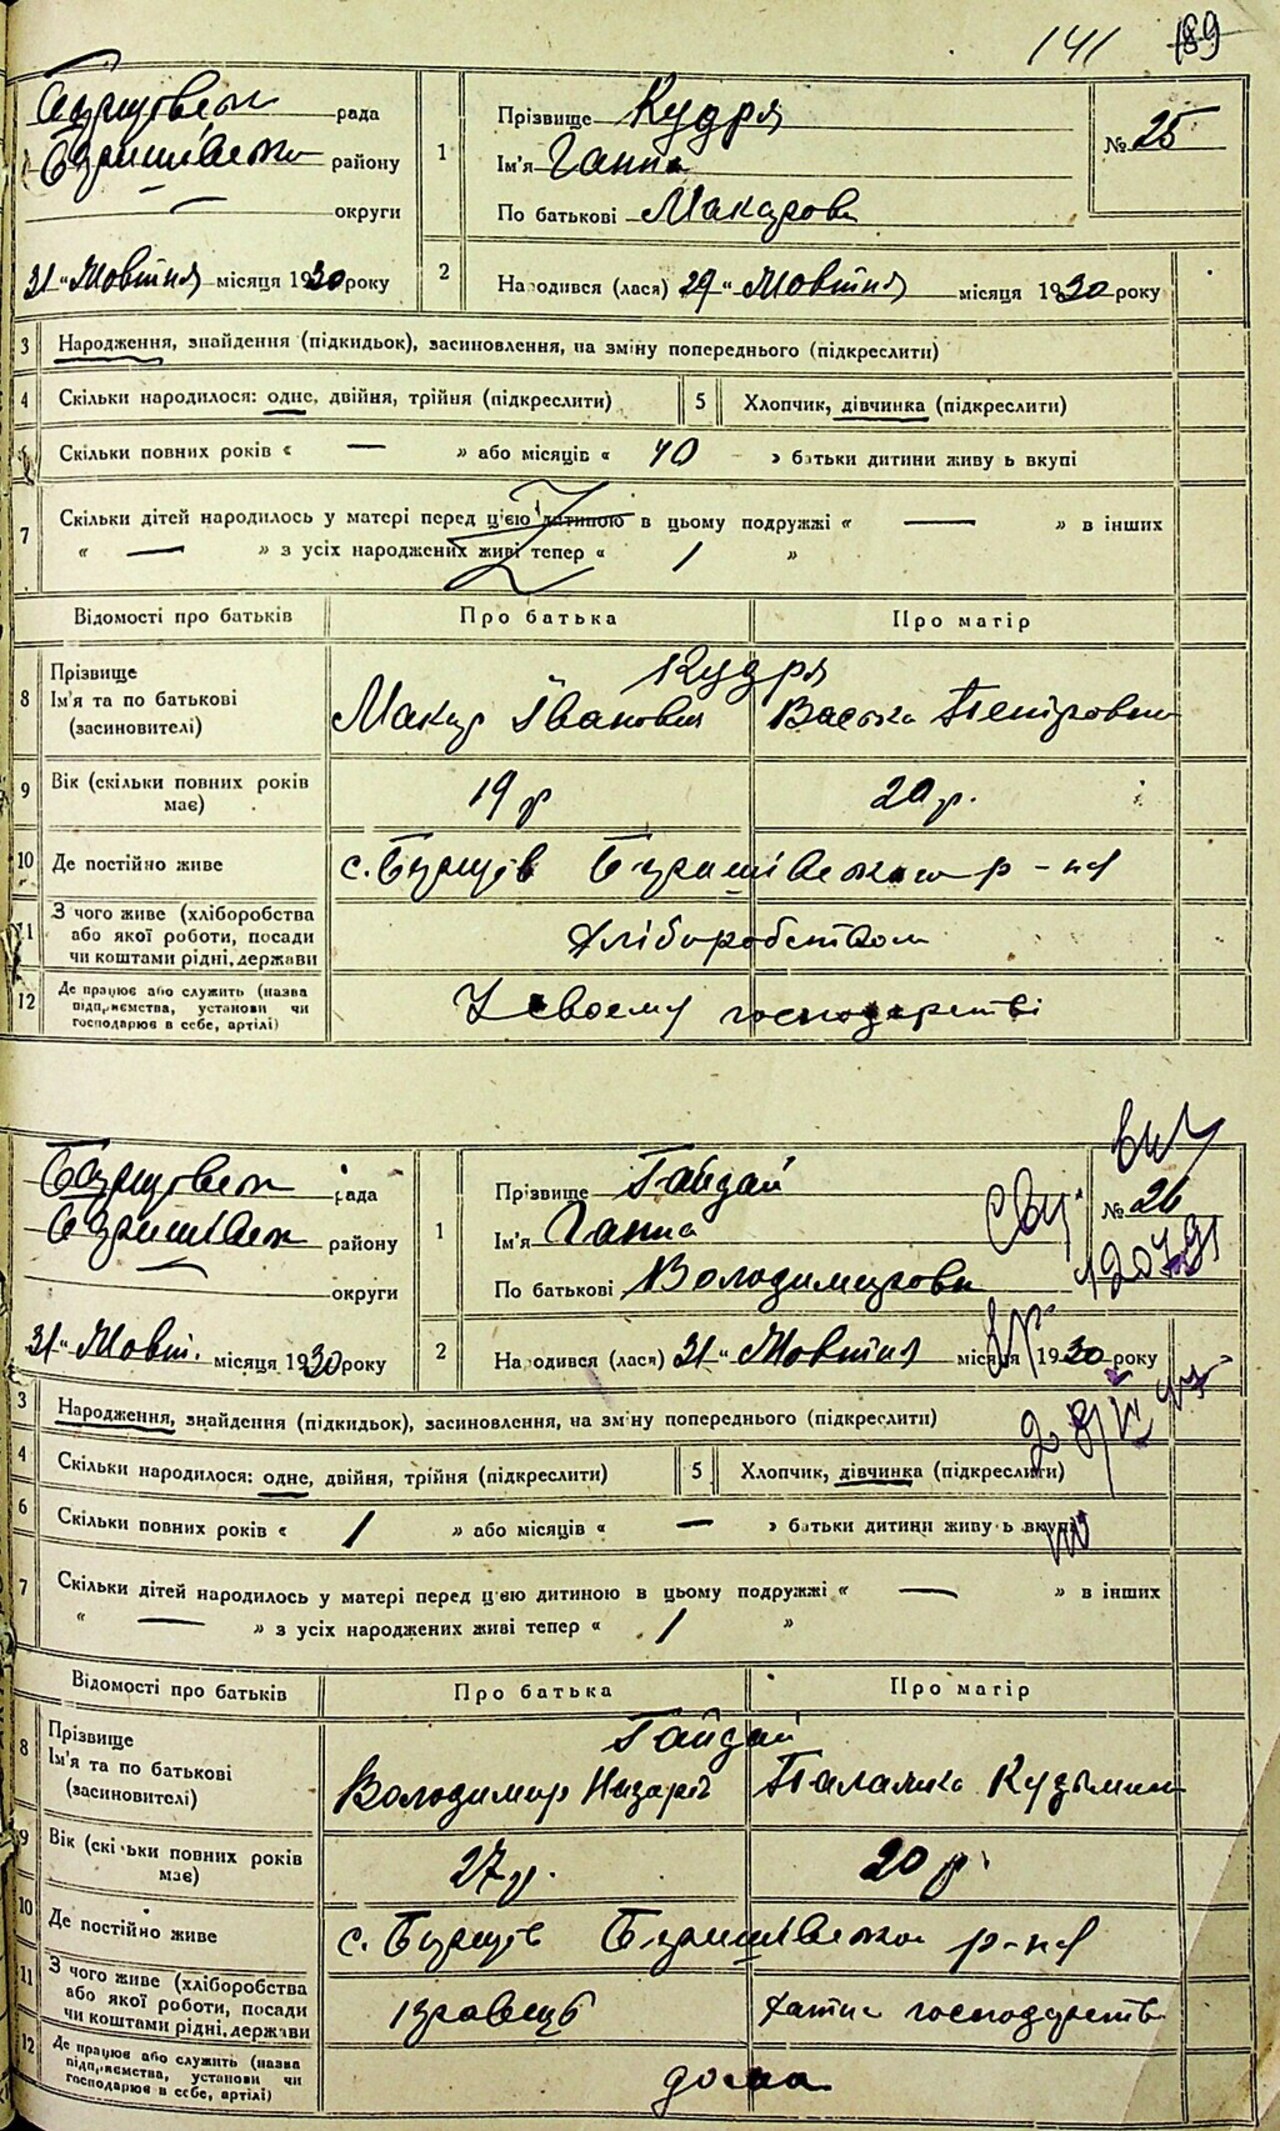 141 189
Борщовск рада
Баришівсько району
— округи
31 " Жовтня місяця 1930 року
1 Прізвище Кудря
Ім'я Ганна
По батькові Макарова
№ 25
2 Народився (лася) 29 " Жовтня місяця 1930 року
3 Народження, знайдення (підкидьок), засиновлення, на зміну попереднього (підкреслити)
4 Скільки народилося: одне, двійня, трійня (підкреслити) 5 Хлопчик, дівчинка (підкреслити)
6 Скільки повних років « — » або місяців « 10 » батьки дитини живуть вкупі
7 Скільки дітей народилось у матері перед ц'єю дитиною в цьому подружжі « — » в інших
« — » з усіх народжених живі тепер « 1 »
Відомості про батьків Про батька Про матір
8 Прізвище
Ім'я та по батькові
(засиновителі)
Кудря
Макар Іванович Васька Петровна
9 Вік (скільки повних років має) 19 р 20 р.
10 Де постійно живе с. Борщів Баришівського р-на
11 З чого живе (хліборобства
або якої роботи, посади
чи коштами рідні, держави
Хліборобством
12 Де працює або служить (назва
підприємства, установи чи
господарює в себе, артілі)
У своему господарстві
Борщовск рада
Баришівск району
— округи
31 " Жовт. місяця 1930 року
1 Прізвище Гайдай
Ім'я Ганна
По батькові Володимирова
№ 26
2 Народився (лася) 31 " Жовтня місяця 1930 року
3 Народження, знайдення (підкидьок), засиновлення, на зміну попереднього (підкреслити)
4 Скільки народилося: одне, двійня, трійня (підкреслити) 5 Хлопчик, дівчинка (підкреслити)
6 Скільки повних років « 1 » або місяців « — » батьки дитини живуть вкупі
7 Скільки дітей народилось у матері перед ц'єю дитиною в цьому подружжі « — » в інших
« — » з усіх народжених живі тепер « 1 »
Відомості про батьків Про батька Про матір
8 Прізвище
Ім'я та по батькові
(засиновителі)
Гайдай
Володимир Назарів Палажка Кузьмин
9 Вік (скільки повних років має) 27 р. 20 р.
10 Де постійно живе с. Борщів Баришівсько р-на
11 З чого живе (хліборобства
або якої роботи, посади
чи коштами рідні, держави
кравець хатне господарств
12 Де працює або служить (назва
підприємства, установи чи
господарює в себе, артілі)
дома